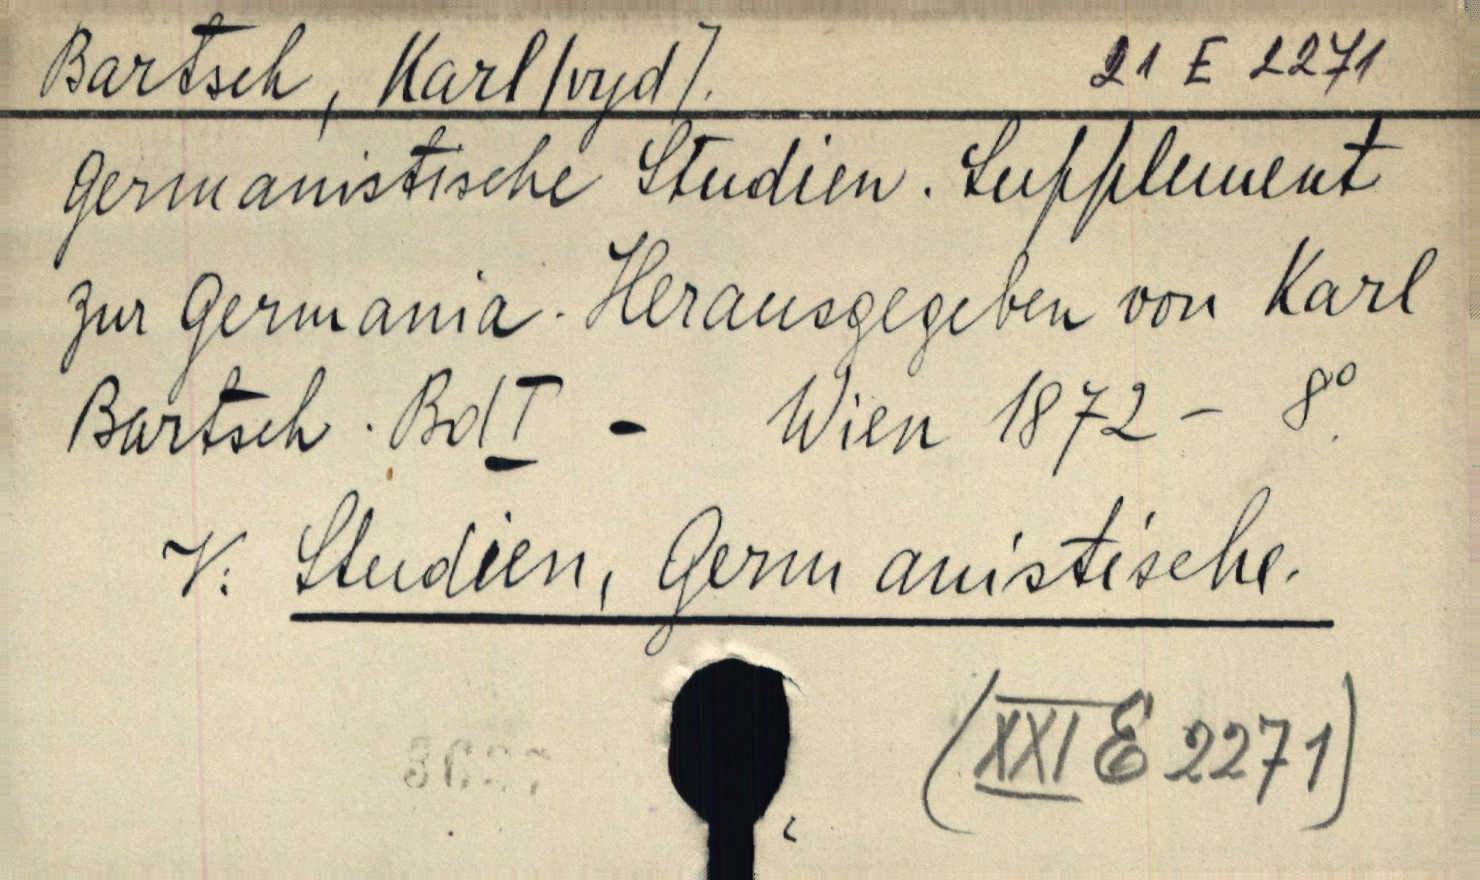 Bartsch, Karl /vyd/. 21 E 2271
Germanistische Studien. Supplement
zur Germania. Herausgegeben von Karl
Bartsch. Bd I - Wien 1872 - 8°.
V: Studien, Germanistische.
(XXI E 2271)